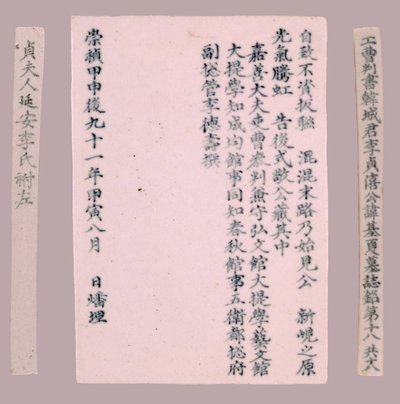 工曹判書韓城君李貞僖公諱基夏墓誌銘第十八 共十八
自致不資扳聯 混混末路乃始見公 新峴之原
光氣騰虹 告後式敬公藏其中
嘉善大夫吏曹參判兼守弘文館大提學藝文館
大提學知成均館事同知春秋館事五衛都摠府
副摠管李德壽撰
崇禎甲申後九十一年甲寅八月 日燔埋
貞夫人延安李氏祔左